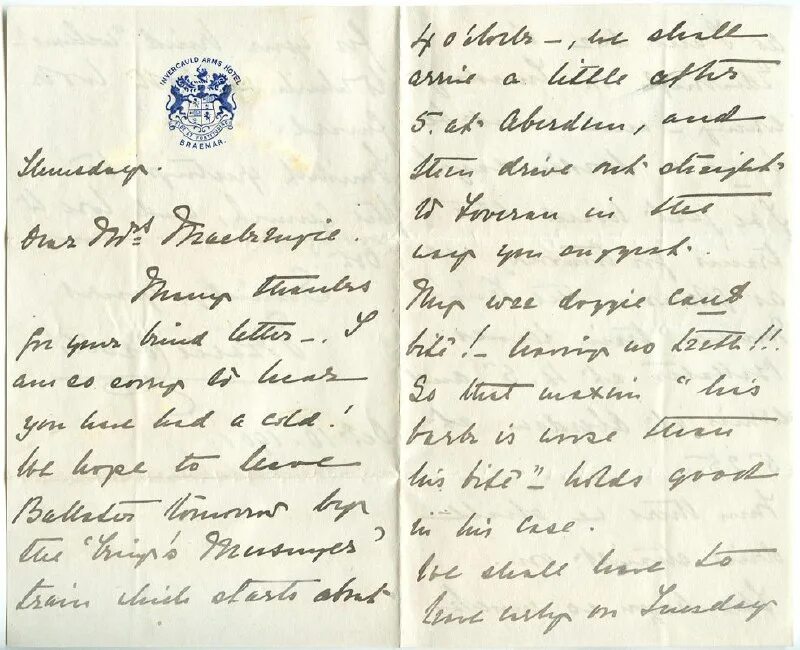 INVERCAULD ARMS HOTEL
BRAEMAR.
Thursday.
Dear Mrs Mackenzie.
Many thanks
for your kind letter –. I
am so sorry to hear
you have had a cold!
We hope to leave
Ballater tomorrow by
the "King's Messenger"
train which starts about
4 o'clock –, we shall
arrive a little after
5. at Aberdeen, and
then drive out straight
to in the
way you suggest.
My wee doggie can't
bite! – having no teeth!!
So that maxim "his
bark is worse than
his bite" – holds good
in his case.
We shall have to
leave on Tuesday